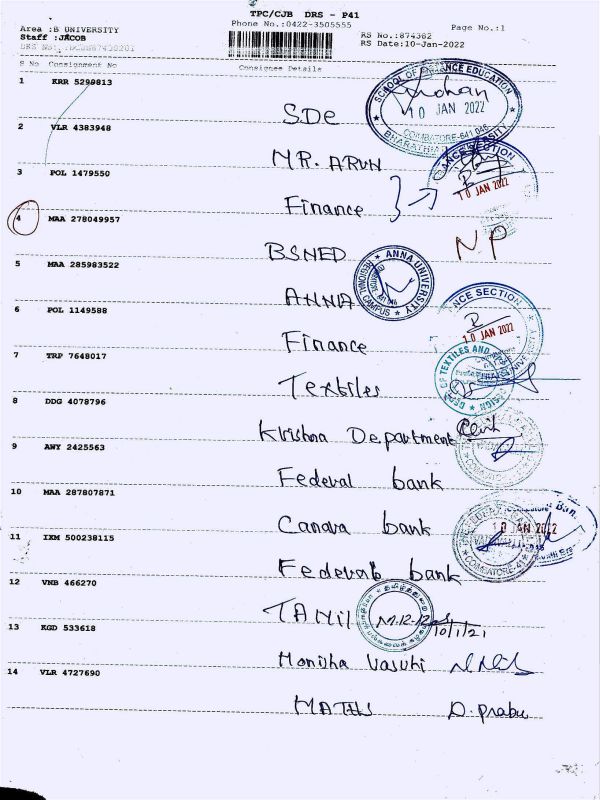 TPC/CJB DRS - P41
Area :B UNIVERSITY Phone No.:0422-3505555 Page No.:1
Staff :JACOB RS No.:874382
RS Date:10-Jan-2022
S No Consignment No Consignee Details
1 KRR 5299813 SDE
SCHOOL OF DISTANCE EDUCATION
10 JAN 2022
COIMBATORE-641 046
2 VLR 4383948 MR. ARUN
3 POL 1479550 Finance
10 JAN 2022
4 MAA 278049957 BSNED NP
5 MAA 285983522 ANNA
ANNA UNIVERSITY
REGIONAL CAMPUS
6 POL 1149588 Finance
NCE SECTION
10 JAN 2022
7 TRP 7648017 Textiles
DEPT. OF TEXTILES AND
8 DDG 4078796 Krishna Department
9 ANY 2425563 Federal bank
COIMBATORE
10 MAA 287807871 Canara bank
10 JAN 2022
11 IXM 500238115 Federal bank
COIMBATORE-41
12 VNB 466270 TAMil
10/1/21
13 KGD 533618 Monisha Vasuki
14 VLR 4727690 MATHS D. prabu